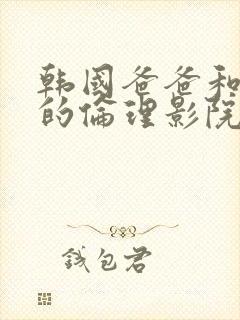 韩國爸爸和
的倫理影院
钱包君